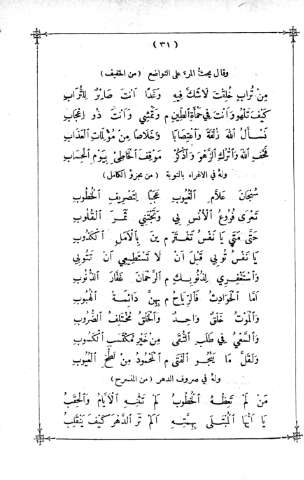 (٣١)
وقال يحث المرء على التواضع (من الخفيف)
مِنْ تُرَابٍ خُلِقْتَ لَا شَكَّ فِيهِ وَغَدًا أَنْتَ صَائِرٌ لِلتُّرَابِ
كَيْفَ تَلْهُو وَأَنْتَ فِي حَمْأَةِ الطِّينِ م وَتَمْشِي وَأَنْتَ ذُو إِعْجَابِ
نَسْأَلُ اللهَ زُلْفَةً وَاعْتِصَامًا وَخَلَاصًا مِنْ مُؤْلِمَاتِ العَذَابِ
فَخَفِ اللهَ وَاتْرُكِ الزَّهْوَ وَاذْكُرْ مَوْقِفَ الخَاطِئِ بِيَوْمِ الحِسَابِ
وله في الاغراء بالتوبة (من مجزوء الكامل)
سُبْحَانَ عَلَّامِ الغُيُوبِ عَجَبًا لِتَصْرِيفِ الخُطُوبِ
تَعْرَى فُرُوعُ الأُنْسِ بِي وَتَجْتَنِي ثَمَرَ القُلُوبِ
حَتَّى مَتَى يَا نَفْسُ تَغْتَرِّ م ينَ بِالأَمَلِ الكَذُوبِ
يَا نَفْسُ تُوبِي قَبْلَ أَنْ لَا تَسْتَطِيعِي أَنْ تَتُوبِي
وَاسْتَغْفِرِي لِذُنُوبِكِ م الرَّحْمَانَ غَفَّارَ الذُّنُوبِ
أَمَّا الحَوَادِثُ فَالرِّيَاحُ م بِهِنَّ دَائِمَةُ الهُبُوبِ
وَالمَوْتُ خَلْقٌ وَاحِدٌ وَالخَلْقُ مُخْتَلِفُ الضُّرُوبِ
وَالسَّعْيُ فِي طَلَبِ التُّقَى مِنْ خَيْرِ مَكْسَبَةِ الكَسُوبِ
وَلَقَلَّ مَا يَنْجُو الفَتَى م المَحْمُودُ مِنْ لَطْخِ العُيُوبِ
وله في صروف الدهر (من المنسرح)
مَنْ لَمْ تَعِظْهُ الخُطُوبُ لَمْ تَثْنِهِ الأَيَّامُ وَالحِقَبُ
يَا أَيُّهَا المُبْتَلَى بِهِمَّتِهِ أَلَمْ تَرَ الدَّهْرَ كَيْفَ يَنْقَلِبُ